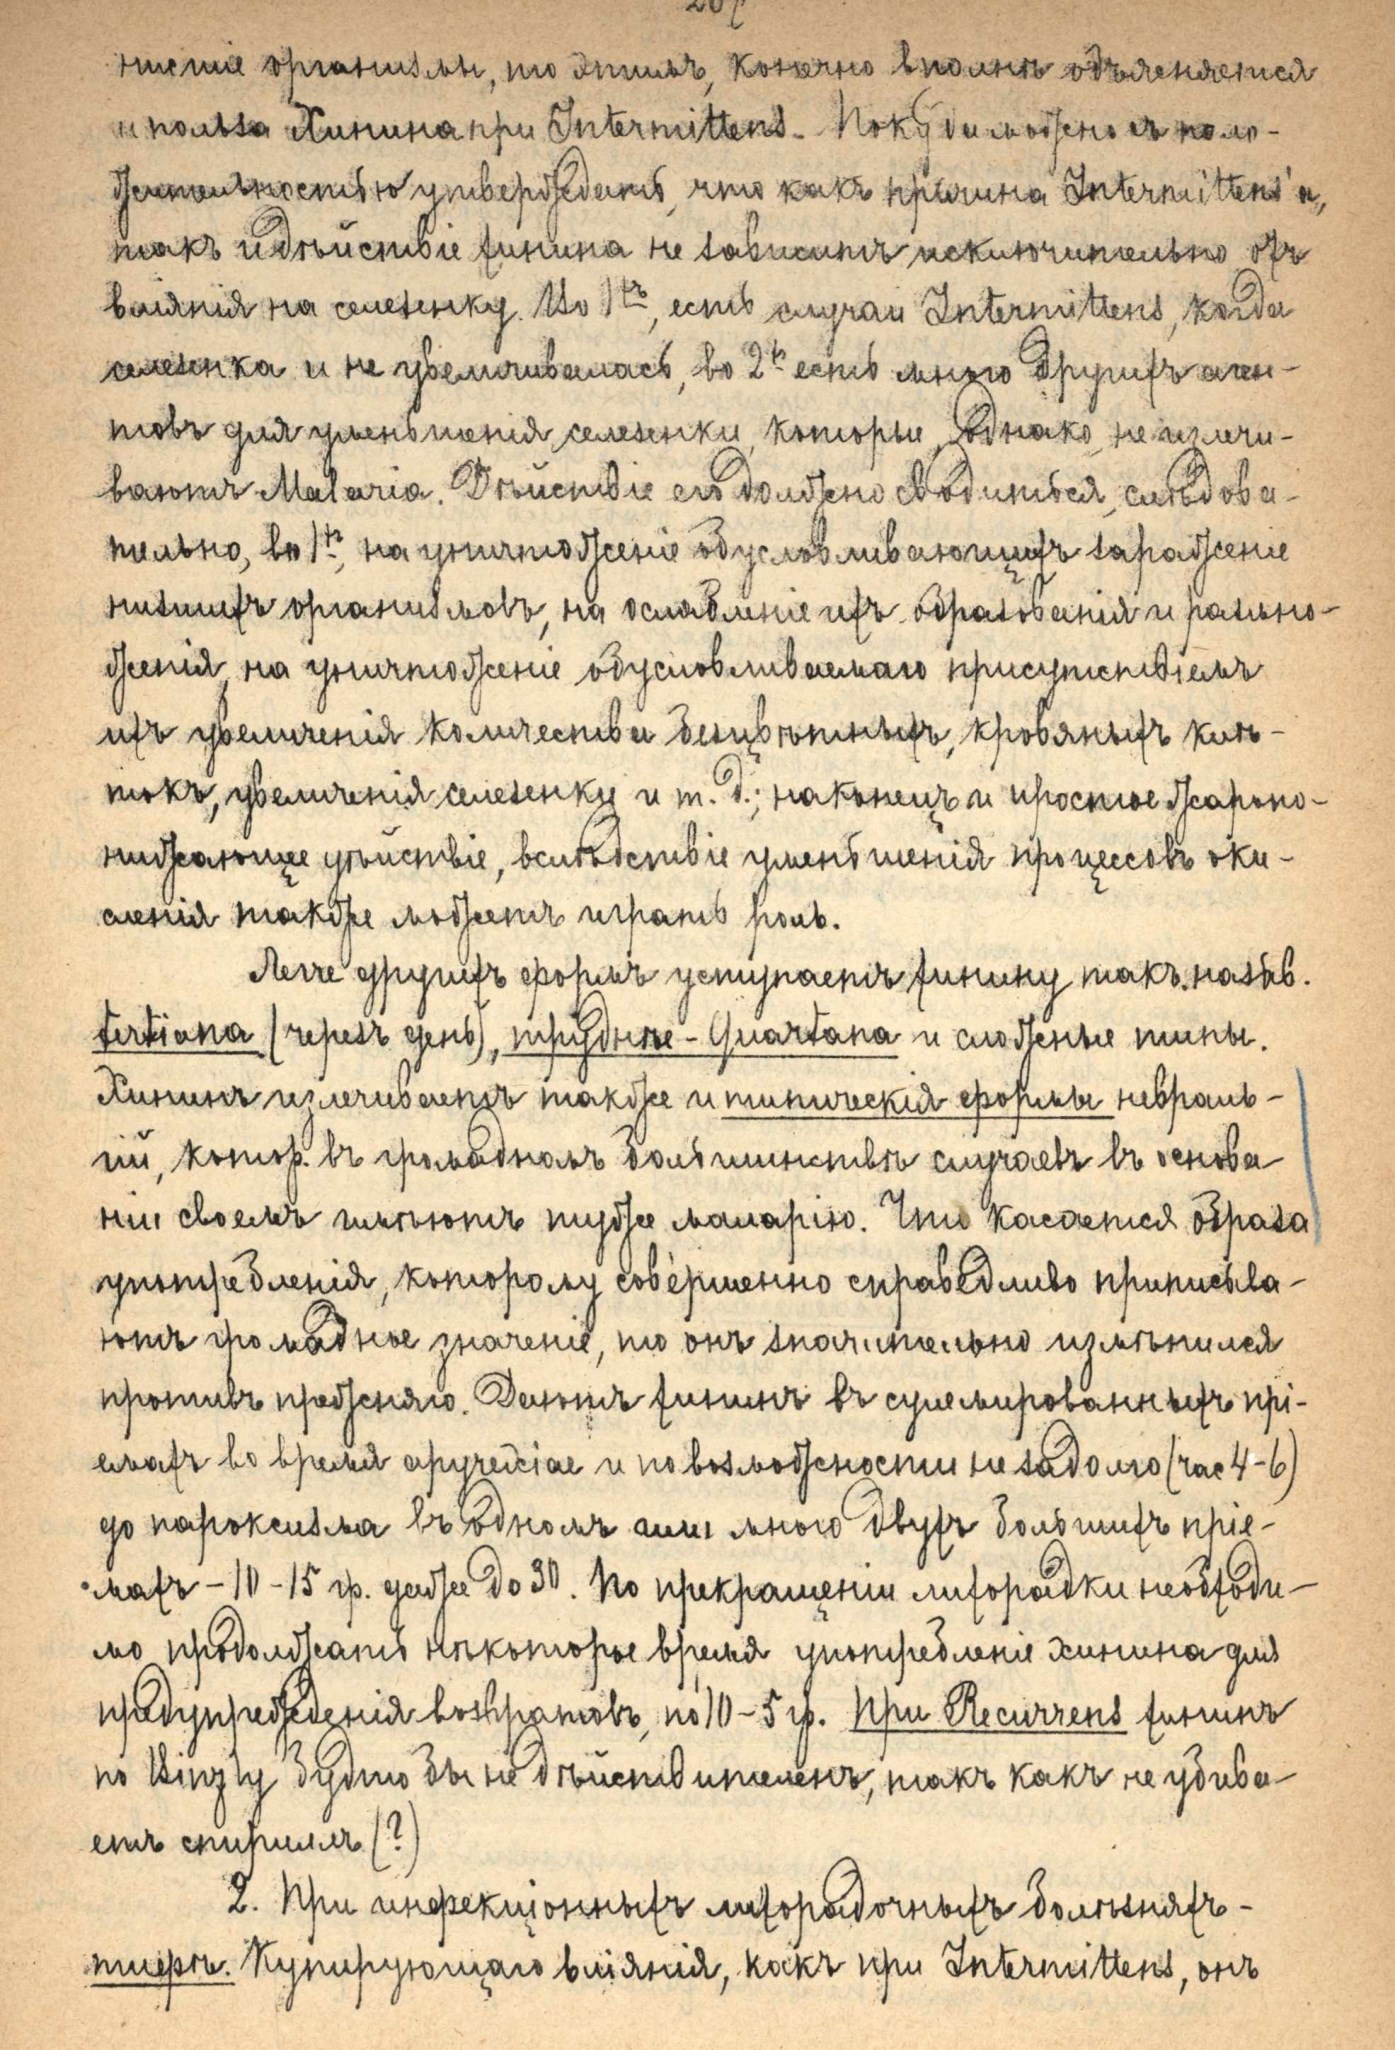 207
низшіе организмы, то этимъ, конечно вполнѣ объясняется
и польза Хинина при Intermittens. Покуда можно съ поло-
жительностью утверждать, что какъ причина Intermittens'а,
такъ и дѣйствіе хинина не зависитъ исключительно отъ
вліянія на селезенку. Во 1хъ, есть случаи Intermittens, когда
селезенка и не увеличивалась, во 2х есть много другихъ аген-
товъ для уменьшенія селезенки, которые, однако, не излечи-
ваютъ Malaria. Дѣйствіе его должно сводиться, слѣдова-
тельно, во 1х, на уничтоженіе обусловливающихъ зараженіе
низшихъ организмовъ, на ослабленіе ихъ образованія и размно-
женія, на уничтоженіе обусловливаемаго присутствіемъ
ихъ увеличенія количества безцвѣтныхъ, кровяныхъ клѣ-
токъ, увеличенія селезенки и т. д.; наконецъ и простое жаропо-
нижающее дѣйствіе, вслѣдствіе уменьшенія процессовъ оки-
сленія также можетъ играть роль.
Легче другихъ формъ уступаетъ хинину такъ назыв.
tertiana (черезъ день), труднѣе - Quartana и сложные типы.
Хининъ излечиваетъ также и типическія формы невраль-
гій, котор. въ громадномъ большинствѣ случаевъ въ основа
ніи своемъ имѣютъ туже маларію. Что касается образа
употребленія, которому совершенно справедливо приписыва-
ютъ громадное значеніе, то онъ значительно измѣнился
противъ прежняго. Даютъ хининъ въ суммированныхъ прі-
емахъ во время apyrexiae и по возможности не задолго (час 4-6)
до пароксизма въ одномъ или много двухъ большихъ пріе-
махъ - 10 - 15 гр. даже до 30. По прекращеніи лихорадки необходи-
мо продолжать нѣкоторое время употребленіе хинина для
предупрежденія возвратовъ, по 10 - 5 гр. При Recurrens хининъ
по Binz'у будто бы не дѣйствителенъ, такъ какъ не убива-
етъ спириллъ (?)
2. При инфекціонныхъ лихорадочныхъ болѣзняхъ -
тифѣ. Купирующаго вліянія, какъ при Intermittens, онъ